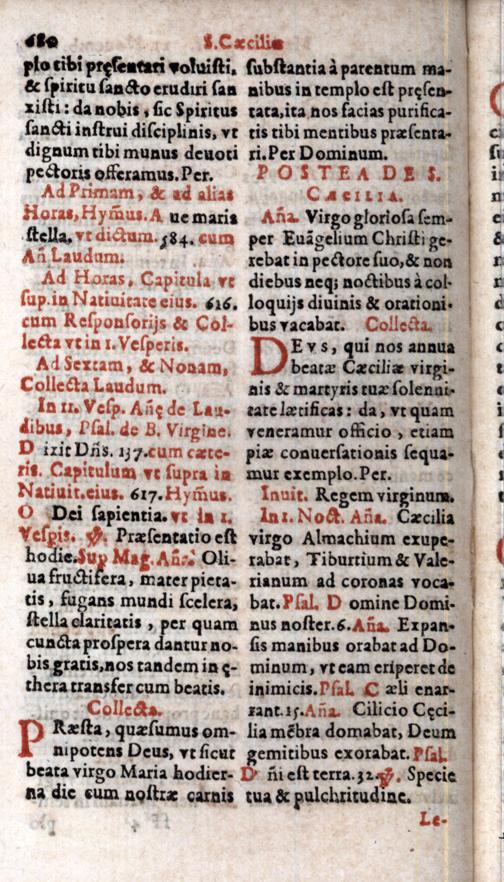 680
S. Cæciliæ
plo tibi pręsentari voluisti,
& spiritu sancto erudiri san
xisti: da nobis, sic Spiritus
sancti instrui disciplinis, vt
dignum tibi munus deuoti
pectoris offeramus. Per.
Ad Primam, & ad alias
Horas, Hym̃us. A ue maris
stella, vt dictum. 584. cum
Añ Laudum.
Ad Horas, Capitula vt
sup. in Natiuitate eius. 616.
cum Responsorijs & Col-
lecta vt in 1. Vesperis.
Ad Sextam, & Nonam,
Collecta Laudum.
In 11. Vesp. Añę de Lau-
dibus, Psal. de B. Virgine.
D ixit Dñs. 137. cum cæte-
ris. Capitulum vt supra in
Natiuit. eius. 617. Hym̃us.
O Dei sapientia. vt in 1.
Vespis. ℣. Præsentatio est
hodie. Sup Mag. Aña. Oli-
ua fructifera, mater pieta-
tis, fugans mundi scelera,
stella claritatis, per quam
cuncta prospera dantur no-
bis gratis, nos tandem in ę-
thera transfer cum beatis.
Collecta.
PRæsta, quæsumus om-
nipotens Deus, vt sicut
beata virgo Maria hodier-
na die cum nostræ carnis
substantia à parentum ma-
nibus in templo est pręsen-
tata, ita nos facias purifica-
tis tibi mentibus præsenta-
ri. Per Dominum.
POSTEA DE S.
CÆCILIA.
Aña. Virgo gloriosa sem-
per Euãgelium Christi ge-
rebat in pectore suo, & non
diebus neq; noctibus à col-
loquijs diuinis & orationi-
bus vacabat. Collecta.
DEvs, qui nos annua
beatæ Cæciliæ virgi-
nis & martyris tuæ solenni-
tate lætificas: da, vt quam
veneramur officio, etiam
piæ conuersationis sequa-
mur exemplo. Per.
Inuit. Regem virginum.
In 1. Noct. Aña. Cæcilia
virgo Almachium exupe-
rabat, Tiburtium & Vale-
rianum ad coronas voca-
bat. Psal. D omine Domi-
nus noster. 6. Aña. Expan-
sis manibus orabat ad Do-
minum, vt eam eriperet de
inimicis. Psal. C æli enar-
rant. 15. Aña. Cilicio Cęci-
lia mẽbra domabat, Deum
gemitibus exorabat. Psal.
D ñi est terra. 32. ℣. Specie
tua & pulchritudine.
Le-